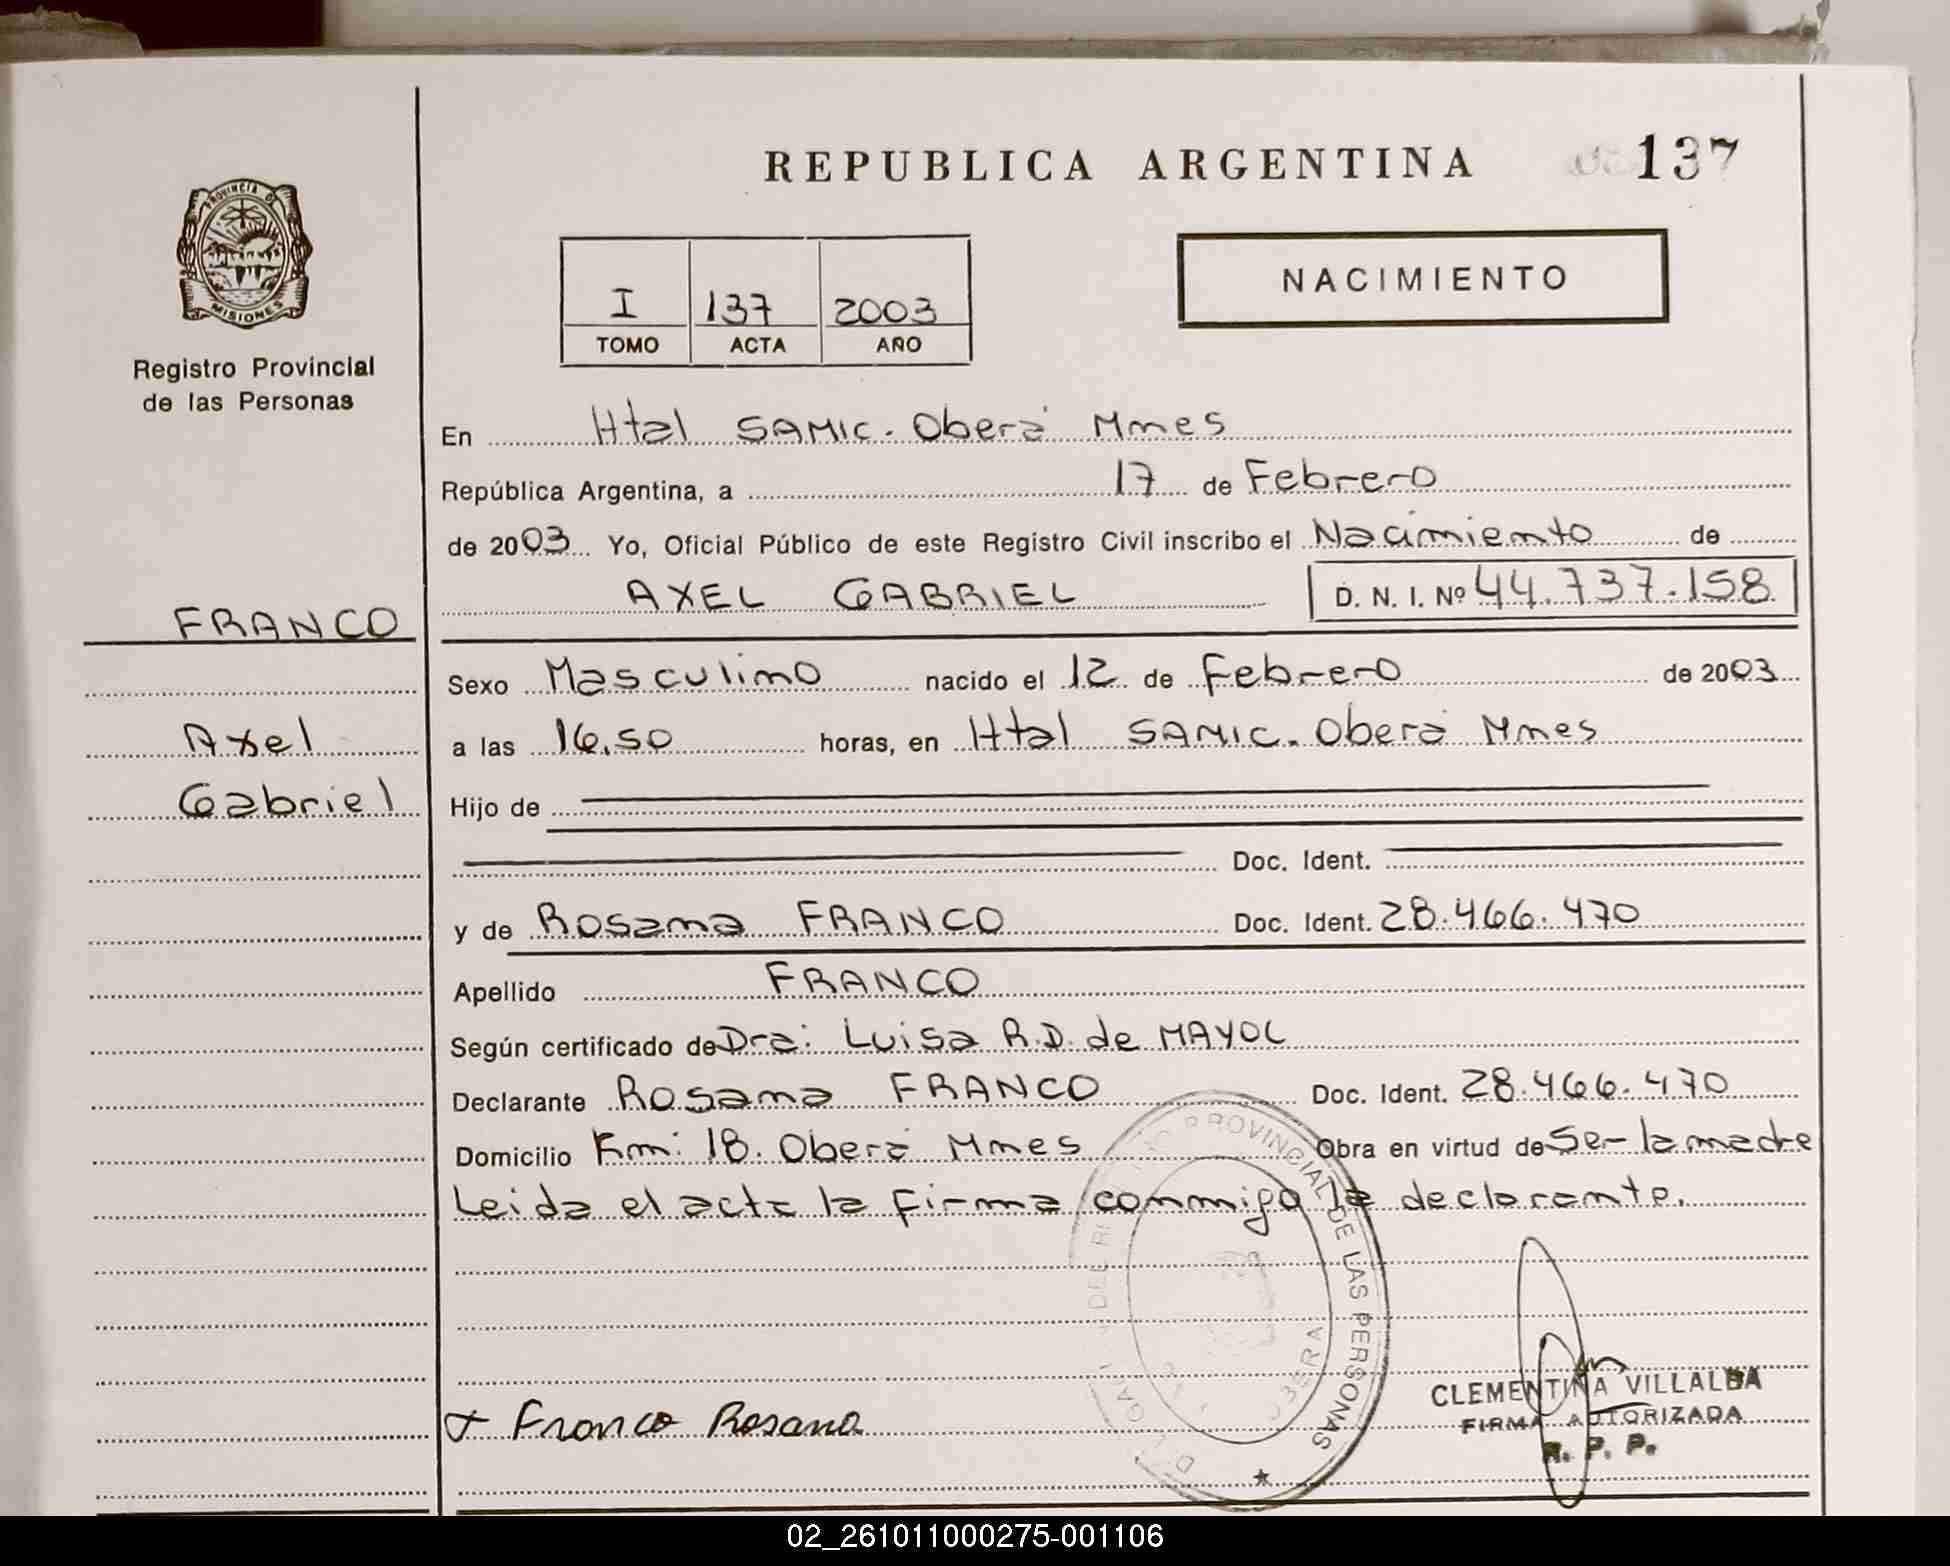 REPUBLICA ARGENTINA
137
PROVINCIA DE
MISIONES
Registro Provincial
de las Personas
NACIMIENTO
I 137 2003
TOMO ACTA AÑO
En Htal SAMIC. Oberá Mnes
República Argentina, a 17 de Febrero
de 2003 Yo, Oficial Público de este Registro Civil inscribo el Nacimiento de
AXEL GABRIEL D. N. I. Nº 44.737.158
FRANCO
Axel
Gabriel
Sexo Masculino nacido el 12 de Febrero de 2003
a las 16.50 horas, en Htal SAMIC. Oberá Mnes
Hijo de
Doc. Ident.
y de Rosana FRANCO Doc. Ident. 28.466.470
Apellido FRANCO
Según certificado de Dra: Luisa R.D. de MAYOL
Declarante Rosana FRANCO Doc. Ident. 28.466.470
Domicilio Km: 18. Oberá Mnes Obra en virtud de Ser la madre
Leida el acta la firma conmigo la declarante.
PROVINCIAL DE LAS PERSONAS
Franco Rosana
CLEMENTINA VILLALBA
FIRMA AUTORIZADA
R. P. P.
02_261011000275-001106